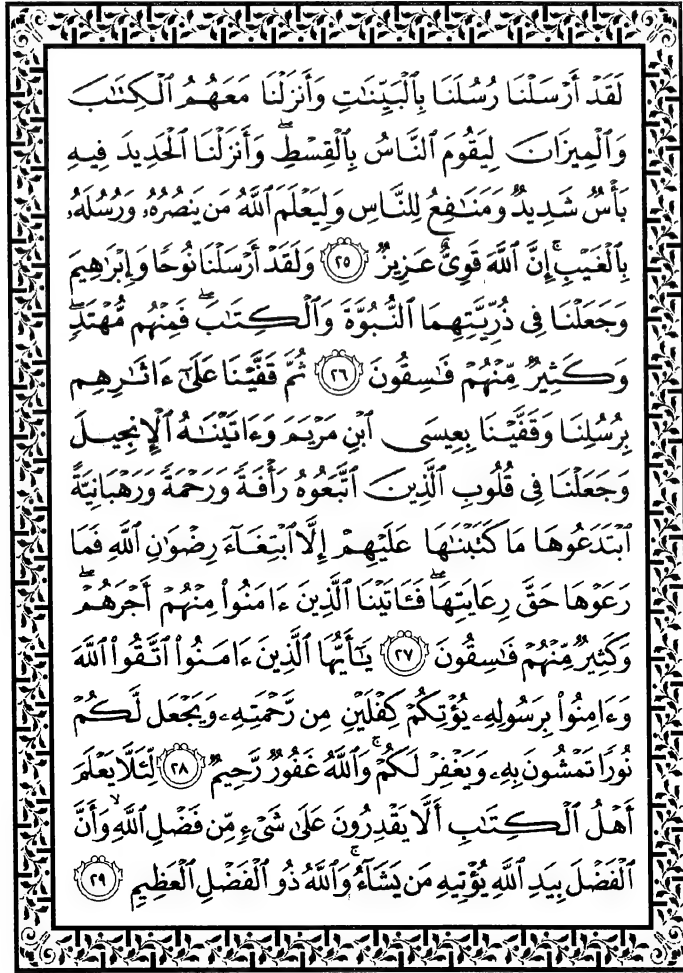 لَقَدْ أَرْسَلْنَا رُسُلَنَا بِٱلْبَيِّنَٰتِ وَأَنزَلْنَا مَعَهُمُ ٱلْكِتَٰبَ
وَٱلْمِيزَانَ لِيَقُومَ ٱلنَّاسُ بِٱلْقِسْطِۖ وَأَنزَلْنَا ٱلْحَدِيدَ فِيهِ
بَأْسٌ شَدِيدٌ وَمَنَٰفِعُ لِلنَّاسِ وَلِيَعْلَمَ ٱللَّهُ مَن يَنصُرُهُۥ وَرُسُلَهُۥ
بِٱلْغَيْبِۚ إِنَّ ٱللَّهَ قَوِىٌّ عَزِيزٌ ٢٥ وَلَقَدْ أَرْسَلْنَا نُوحًا وَإِبْرَٰهِيمَ
وَجَعَلْنَا فِى ذُرِّيَّتِهِمَا ٱلنُّبُوَّةَ وَٱلْكِتَٰبَۖ فَمِنْهُم مُّهْتَدٍۖ
وَكَثِيرٌ مِّنْهُمْ فَٰسِقُونَ ٢٦ ثُمَّ قَفَّيْنَا عَلَىٰٓ ءَاثَٰرِهِم
بِرُسُلِنَا وَقَفَّيْنَا بِعِيسَى ٱبْنِ مَرْيَمَ وَءَاتَيْنَٰهُ ٱلْإِنجِيلَ
وَجَعَلْنَا فِى قُلُوبِ ٱلَّذِينَ ٱتَّبَعُوهُ رَأْفَةً وَرَحْمَةً وَرَهْبَانِيَّةً
ٱبْتَدَعُوهَا مَا كَتَبْنَٰهَا عَلَيْهِمْ إِلَّا ٱبْتِغَآءَ رِضْوَٰنِ ٱللَّهِ فَمَا
رَعَوْهَا حَقَّ رِعَايَتِهَاۖ فَـَٔاتَيْنَا ٱلَّذِينَ ءَامَنُوا۟ مِنْهُمْ أَجْرَهُمْۖ
وَكَثِيرٌ مِّنْهُمْ فَٰسِقُونَ ٢٧ يَٰٓأَيُّهَا ٱلَّذِينَ ءَامَنُوا۟ ٱتَّقُوا۟ ٱللَّهَ
وَءَامِنُوا۟ بِرَسُولِهِۦ يُؤْتِكُمْ كِفْلَيْنِ مِن رَّحْمَتِهِۦ وَيَجْعَل لَّكُمْ
نُورًا تَمْشُونَ بِهِۦ وَيَغْفِرْ لَكُمْۚ وَٱللَّهُ غَفُورٌ رَّحِيمٌ ٢٨ لِّئَلَّا يَعْلَمَ
أَهْلُ ٱلْكِتَٰبِ أَلَّا يَقْدِرُونَ عَلَىٰ شَىْءٍ مِّن فَضْلِ ٱللَّهِۙ وَأَنَّ
ٱلْفَضْلَ بِيَدِ ٱللَّهِ يُؤْتِيهِ مَن يَشَآءُۚ وَٱللَّهُ ذُو ٱلْفَضْلِ ٱلْعَظِيمِ ٢٩